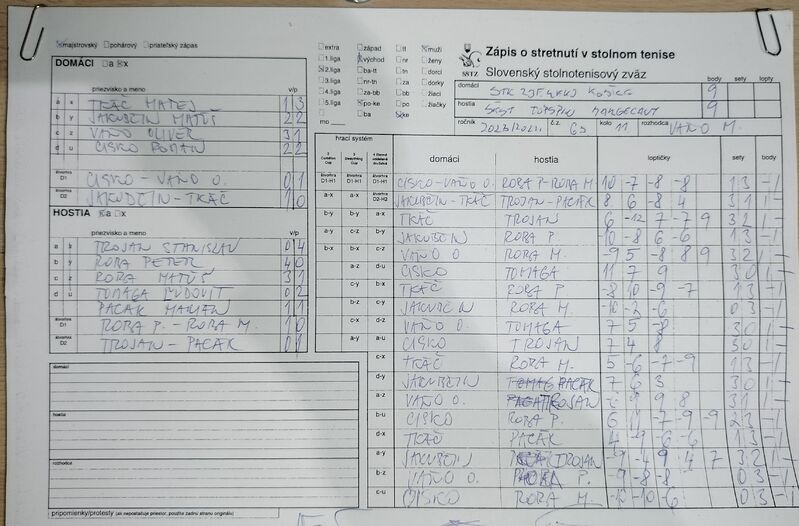 majstrovský pohárový priateľský zápas
DOMÁCI a x
priezvisko a meno v/p
a x TKÁČ MATEJ 1 3
b y JAKUBČIN MATÚŠ 2 2
c z VAŇO OLIVER 3 1
d u CISKO ROMAN 2 2
štvorhra D1 CISKO - VAŇO O. 0 1
štvorhra D2 JAKUBČIN - TKÁČ 1 0
HOSTIA a x
priezvisko a meno v/p
a x TROJAN STANISLAV 0 4
b y RORA PETER 4 0
c z RORA MATÚŠ 3 1
d u TOMAGA ĽUDOVIT 0 2
PACÁK MARIÁN 1 1
štvorhra D1 RORA P. - RORA M. 1 0
štvorhra D2 TROJAN - PACÁK 0 1
domáci
hostia
rozhodca
pripomienky/protesty (ak nepostačuje priestor, použite zadnú stranu originálu)
extra západ tt muži
1.liga východ nr ženy
2.liga ba-tt tn dorci
3.liga nr-tn za dorky
4.liga za-bb bb žiaci
5.liga po-ke po žiačky
mo ba ke
SSTZ
Zápis o stretnutí v stolnom tenise
Slovenský stolnotenisový zväz
body sety lopty
domáci STK KOŠICE 9
hostia MARGECANY 9
ročník č.z. 63 kolo 11 rozhodca VAŇO M.
hrací systém domáci hostia loptičky sety body
štvorhra D1-H1 štvorhra D1-H1 štvorhra D1-H1 CISKO - VAŇO O. RORA P - RORA M. 10 -7 -8 -8 1 3 -1
a-x a-x štvorhra D2-H2 JAKUBČIN - TKÁČ TROJAN - PACÁK 8 6 -8 4 3 1 1 -
b-y b-y a-x TKÁČ TROJAN 6 -12 7 -7 9 3 2 1 -
a-y c-z b-y JAKUBČIN RORA P. -10 -8 6 -6 1 3 -1
b-x b-x c-z VAŇO O RORA M. -9 5 -8 8 9 3 2 1 -
a-z d-u CISKO TOMAGA 11 7 9 3 0 1 -
c-y b-x TKÁČ RORA P. -8 10 -9 -7 1 3 -1
b-z c-y JAKUBČIN RORA M. -10 -2 -6 0 3 -1
c-x d-z VAŇO O. TOMAGA 7 5 8 3 0 1 -
a-y a-u CISKO TROJAN 7 4 8 3 0 1 -
c-x TKÁČ RORA M. 5 -6 -7 -9 1 3 -1
d-y JAKUBČIN PACÁK 7 6 3 3 0 1 -
a-z VAŇO O. TROJAN 9 9 8 3 1 1 -
b-u CISKO RORA P. 6 11 -7 -9 -9 2 3 -1
d-x TKÁČ PACÁK 4 -9 -6 -6 1 3 -1
a-y JAKUBČIN TROJAN -9 -4 9 4 7 3 2 1 -
b-z VAŇO O. P. -9 -8 -8 0 3 -1
c-u CISKO RORA M. -10 -6 0 3 -1